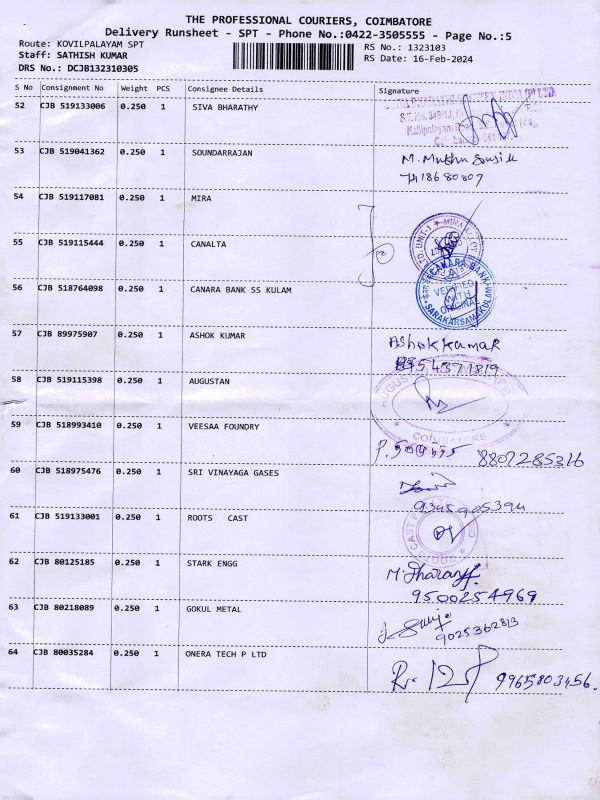 THE PROFESSIONAL COURIERS, COIMBATORE
Delivery Runsheet - SPT - Phone No.:0422-3505555 - Page No.:5
Route: KOVILPALAYAM SPT
RS No.: 1323103
Staff: SATHISH KUMAR
RS Date: 16-Feb-2024
DRS No.: DCJB132310305
S No Consignment No Weight PCS Consignee Details Signature
52 CJB 519133006 0.250 1 SIVA BHARATHY
53 CJB 519041362 0.250 1 SOUNDARRAJAN
54 CJB 519117081 0.250 1 MIRA
55 CJB 519115444 0.250 1 CANALTA
CANARA BANK
VERIFIED WITH ORIGINAL
SARAKARSAMAKULAM
56 CJB 518764098 0.250 1 CANARA BANK SS KULAM
57 CJB 89975907 0.250 1 ASHOK KUMAR Ashok kumar
58 CJB 519115398 0.250 1 AUGUSTAN
COIMBATORE
59 CJB 518993410 0.250 1 VEESAA FOUNDRY
60 CJB 518975476 0.250 1 SRI VINAYAGA GASES
9345905394
61 CJB 519133001 0.250 1 ROOTS CAST
62 CJB 80125185 0.250 1 STARK ENGG
9500254969
63 CJB 80218089 0.250 1 GOKUL METAL
9025362813
64 CJB 80035284 0.250 1 ONERA TECH P LTD
9965803456.